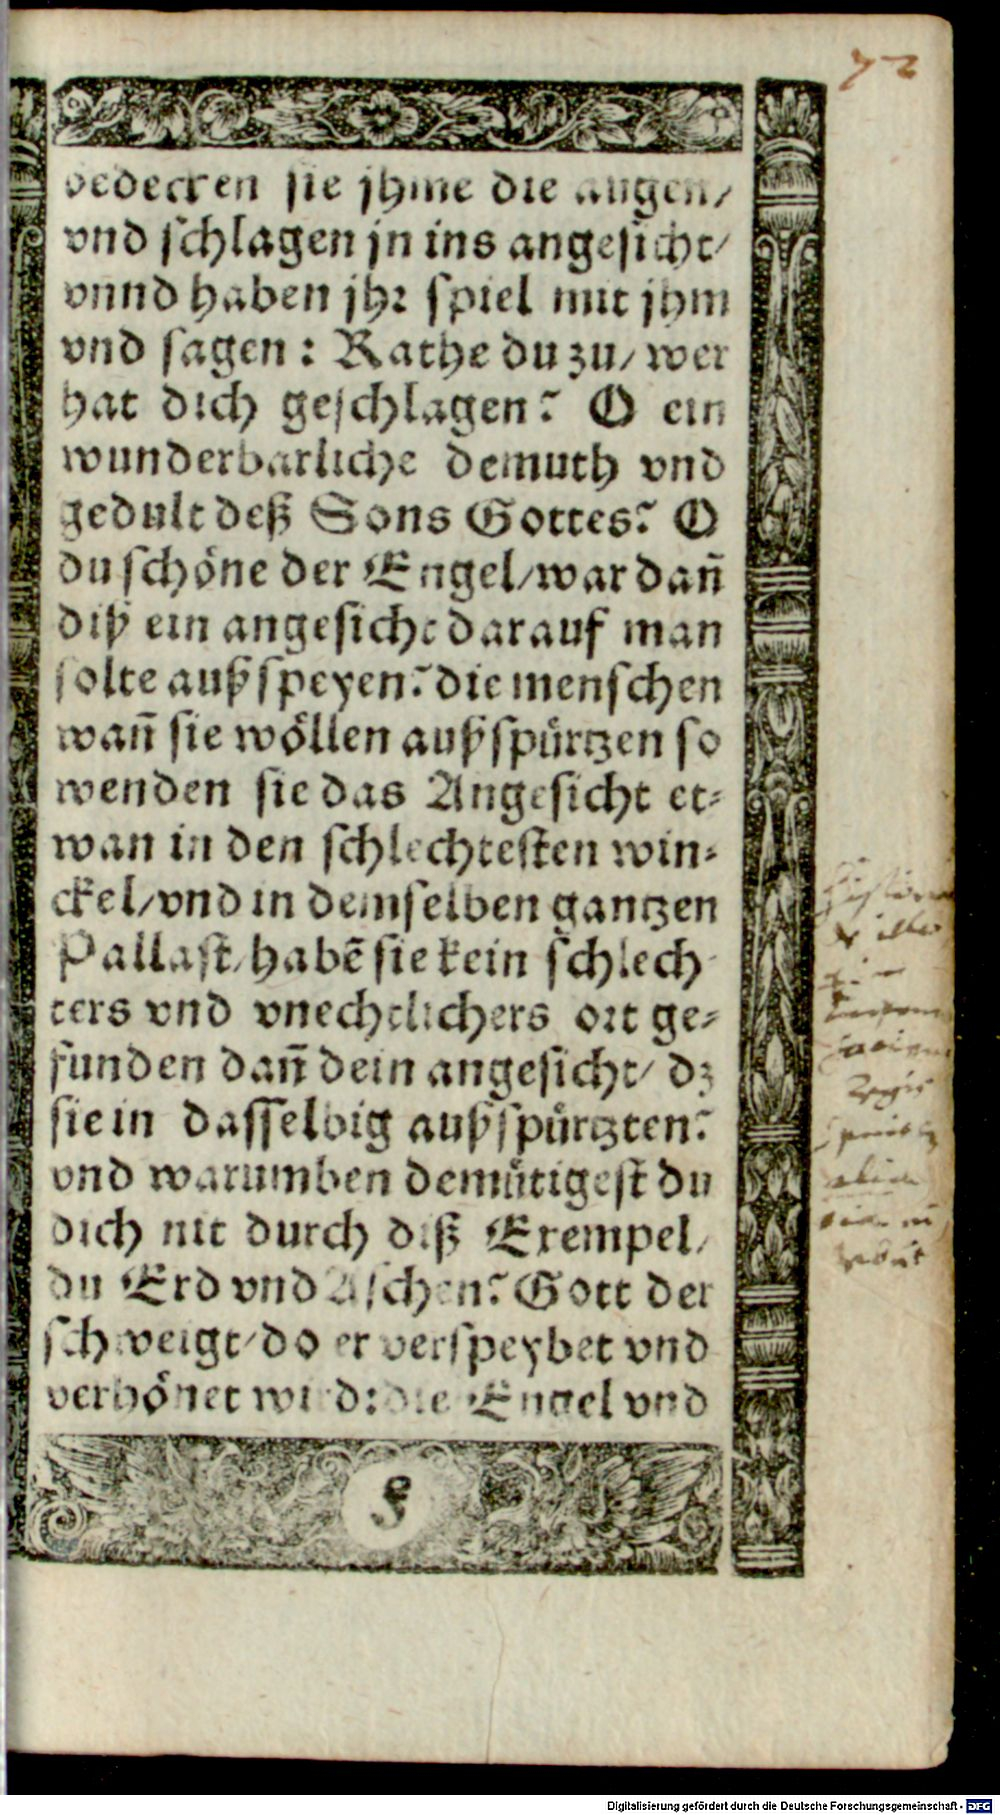 72
bedecken sie jhme die augen/
vnd schlagen jn ins angesicht/
vnnd haben jhr spiel mit jhm
vnd sagen: Rathe du zu/ wer
hat dich geschlagen? O ein
wunderbarliche demuth vnd
gedult deß Sons Gottes? O
du schöne der Engel/ war dañ
diß ein angesicht darauf man
solte außspeyen? die menschen
wañ sie wöllen außspürtzen so
wenden sie das Angesicht et⸗
wan in den schlechtesten win⸗
ckel/ vnd in demselben gantzen
Pallast/ habẽ sie kein schlech⸗
ters vnd vnechtlichers ort ge⸗
funden dañ dein angesicht/ dz
sie in dasselbig außspürtzten?
vnd warumben demütigest du
dich nit durch diß Exempel/
du Erd vnd Aschen? Gott der
schweigt/ do er verspeybet vnd
verhönet wird: die Engel vnd
Digitalisierung gefördert durch die Deutsche Forschungsgemeinschaft - DFG